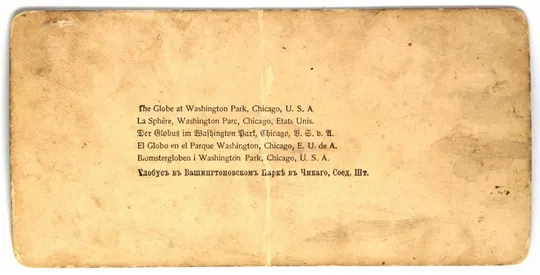 The Globe at Washington Park, Chicago, U. S. A
La Sphère, Washington Parc, Chicago, Etats Unis.
Der Globus im Washington Park, Chicago, V. S. v. A.
El Globo en el Parque Washington, Chicago, E. U. de A.
Blomstergloben i Washington Park, Chicago, U. S. A.
Глобусъ въ Вашингтоновскомъ Паркѣ въ Чикаго, Соед. Шт.